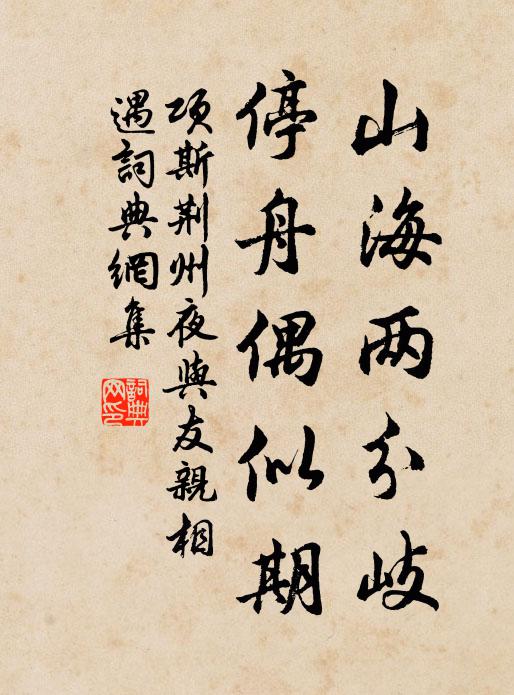 山海两分岐
停舟偶似期
项斯荆州夜与友親相
遇詞典網集
詞典网印